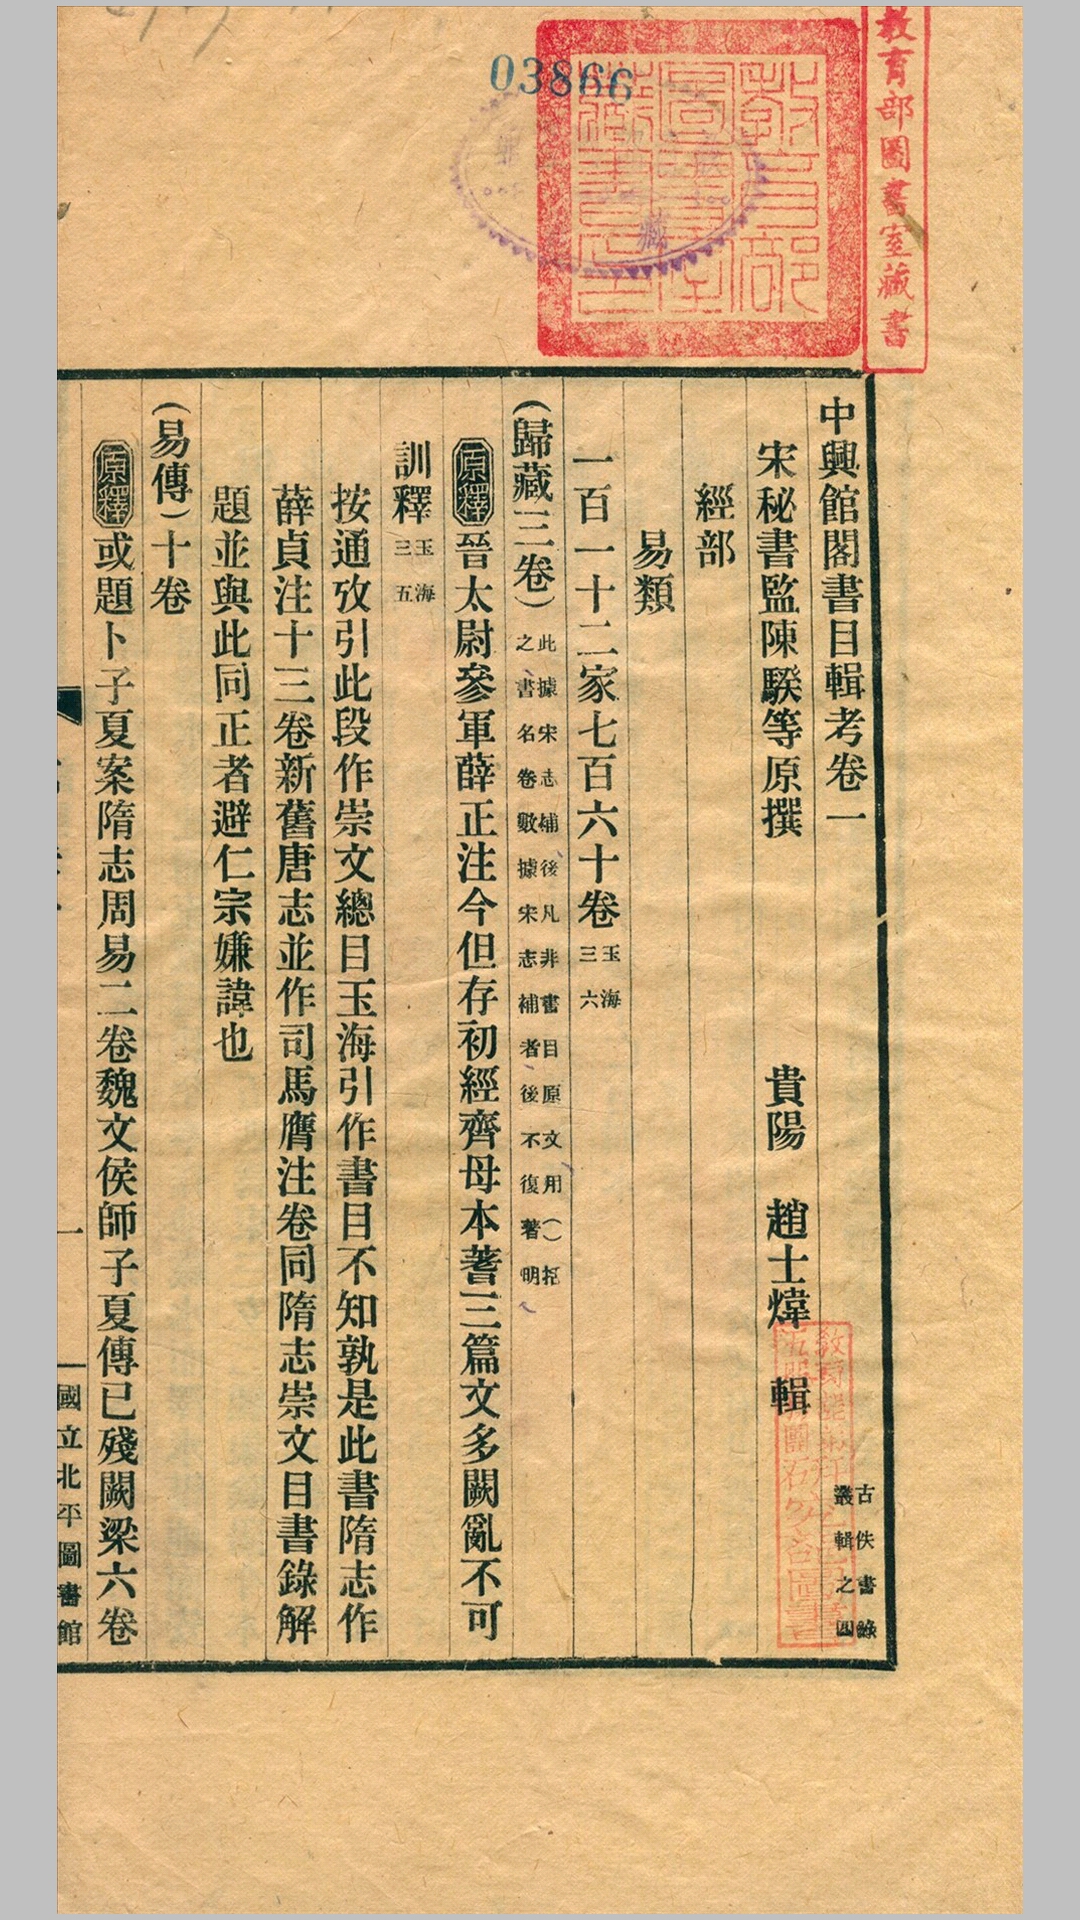 教育部圖書室藏書
03866
教育部圖書室藏書之章
藏
中興館閣書目輯考卷一
古佚書錄
叢輯之四
宋秘書監陳騤等原撰 貴陽 趙士煒 輯
經部
易類
一百一十二家七百六十卷玉海三六
(歸藏三卷)此據宋志補後凡非書目原文用()括
之書名卷數據宋志補者後不復著明
原釋晉太尉參軍薛正注今但存初經齊母本蓍三篇文多闕亂不可
訓釋玉海三五
按通攷引此段作崇文總目玉海引作書目不知孰是此書隋志作
薛貞注十三卷新舊唐志並作司馬膺注卷同隋志崇文目書錄解
題並與此同正者避仁宗嫌諱也
(易傳)十卷
原釋或題卜子夏案隋志周易二卷魏文侯師子夏傳已殘闕梁六卷
一
國立北平圖書館